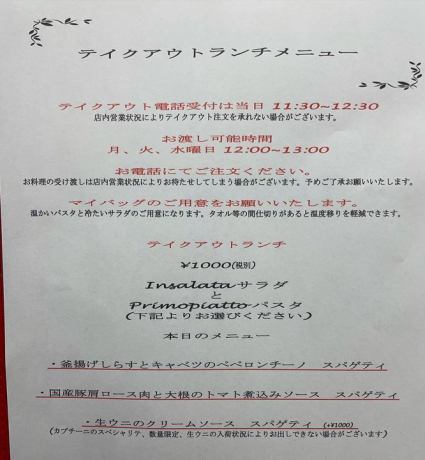 テイクアウトランチメニュー
テイクアウト電話受付は当日 11:30~12:30
店内営業状況によりテイクアウト注文を承れない場合がございます。
お渡し可能時間
月、火、水曜日 12:00~13:00
お電話にてご注文ください。
お料理の受け渡しは店内営業状況によりお待たせしてしまう場合がございます。予めご了承お願いいたします。
マイバッグのご用意をお願いいたします。
温かいパスタと冷たいサラダのご用意になります。タオル等の間仕切りがあると温度移りを軽減できます。
テイクアウトランチ
¥1000(税別)
Insalataサラダ
と
Primopiatto パスタ
(下記よりお選びください)
本日のメニュー
・釜揚げしらすとキャベツのペペロンチーノ スパゲティ
・国産豚肩ロース肉と大根のトマト煮込みソース スパゲティ
・生ウニのクリームソース スパゲティ (+¥1000)
(カプチーニのスペシャリテ、数量限定、生ウニの入荷状況によりお出しできない場合がございます)